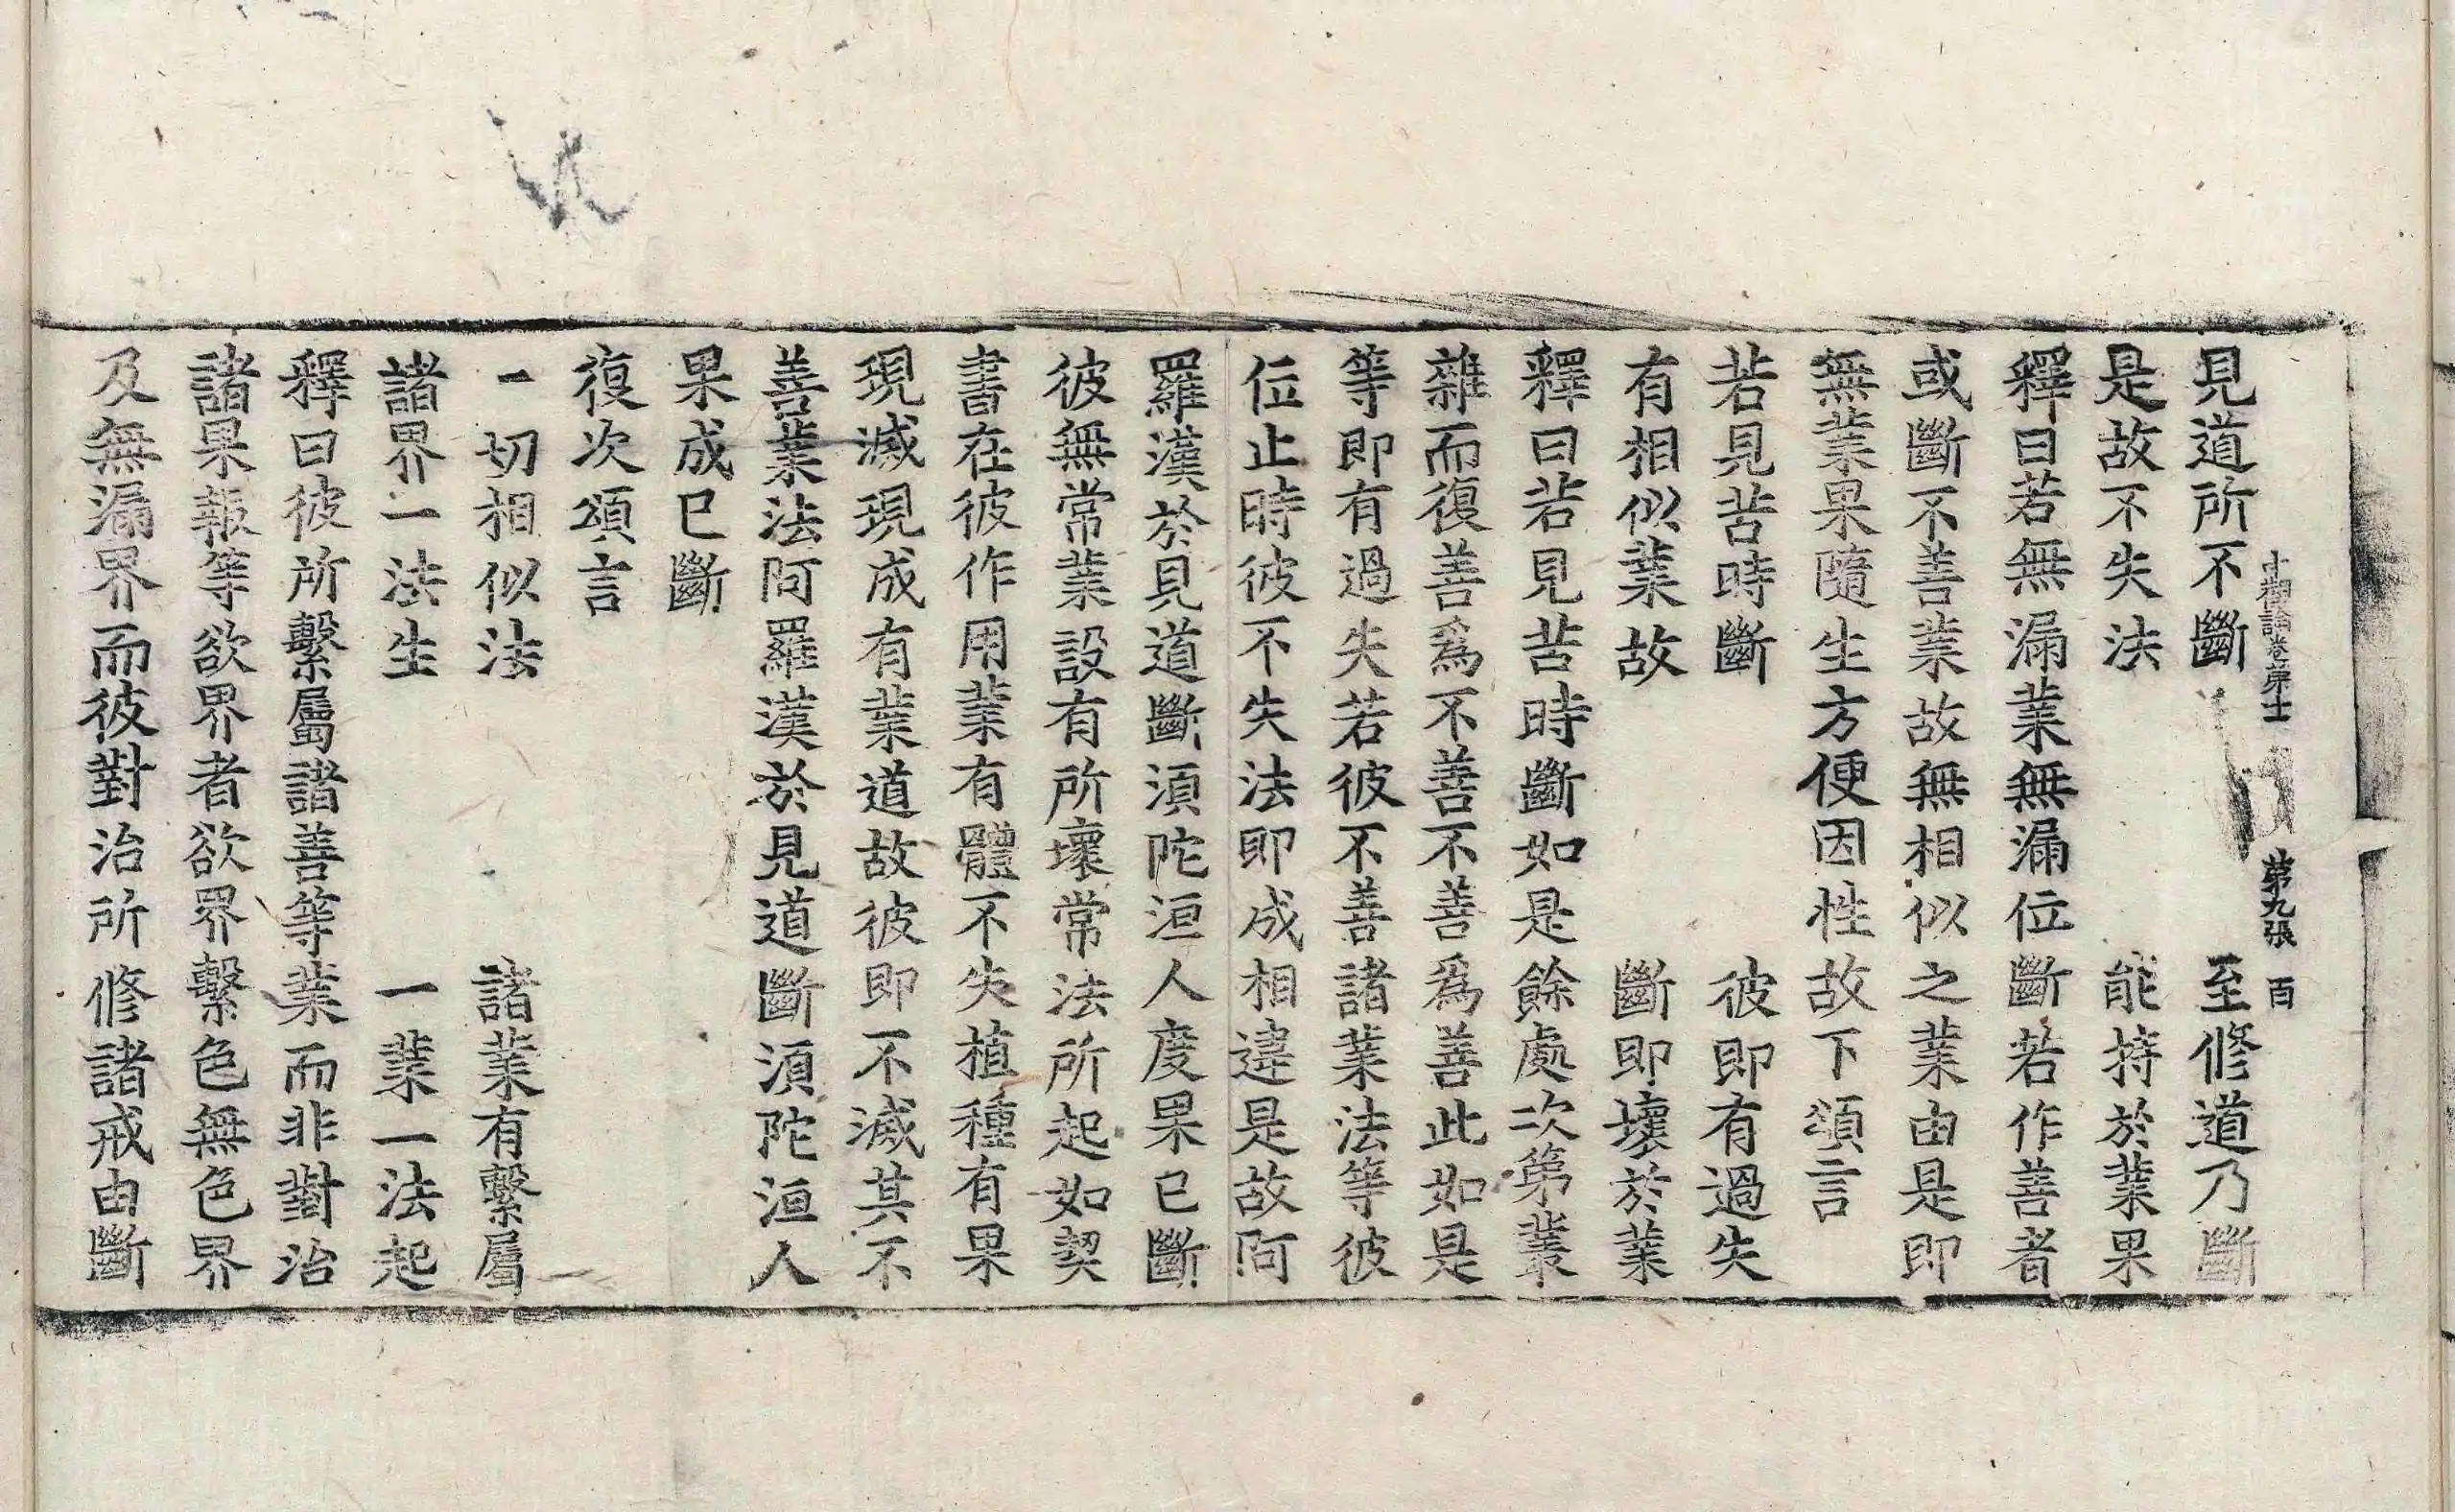 中觀論卷第十一 第九張 百
見道所不斷 至修道乃斷
是故不失法 能持於業果
釋曰若無漏業無漏位斷若作善者
或斷不善業故無相似之業由是即
無業果隨生方便因性故下頌言
若見苦時斷 彼即有過失
有相似業故 斷即壞於業
釋曰若見苦時斷如是餘處次第叢
雜而復善爲不善不善爲善此如是
等即有過失若彼不善諸業法等彼
位止時彼不失法即成相違是故阿
羅漢於見道斷須陀洹人度果已斷
彼無常業設有所壞常法所起如契
書在彼作用業有體不失植種有果
現滅現成有業道故彼即不滅其不
善業法阿羅漢於見道斷須陀洹人
果成已斷
復次頌言
一切相似法 諸業有繫屬
諸界一法生 一業一法起
釋曰彼所繫屬諸善等業而非對治
諸果報等欲界者欲界繫色無色界
及無漏界而彼對治所修諸戒由斷